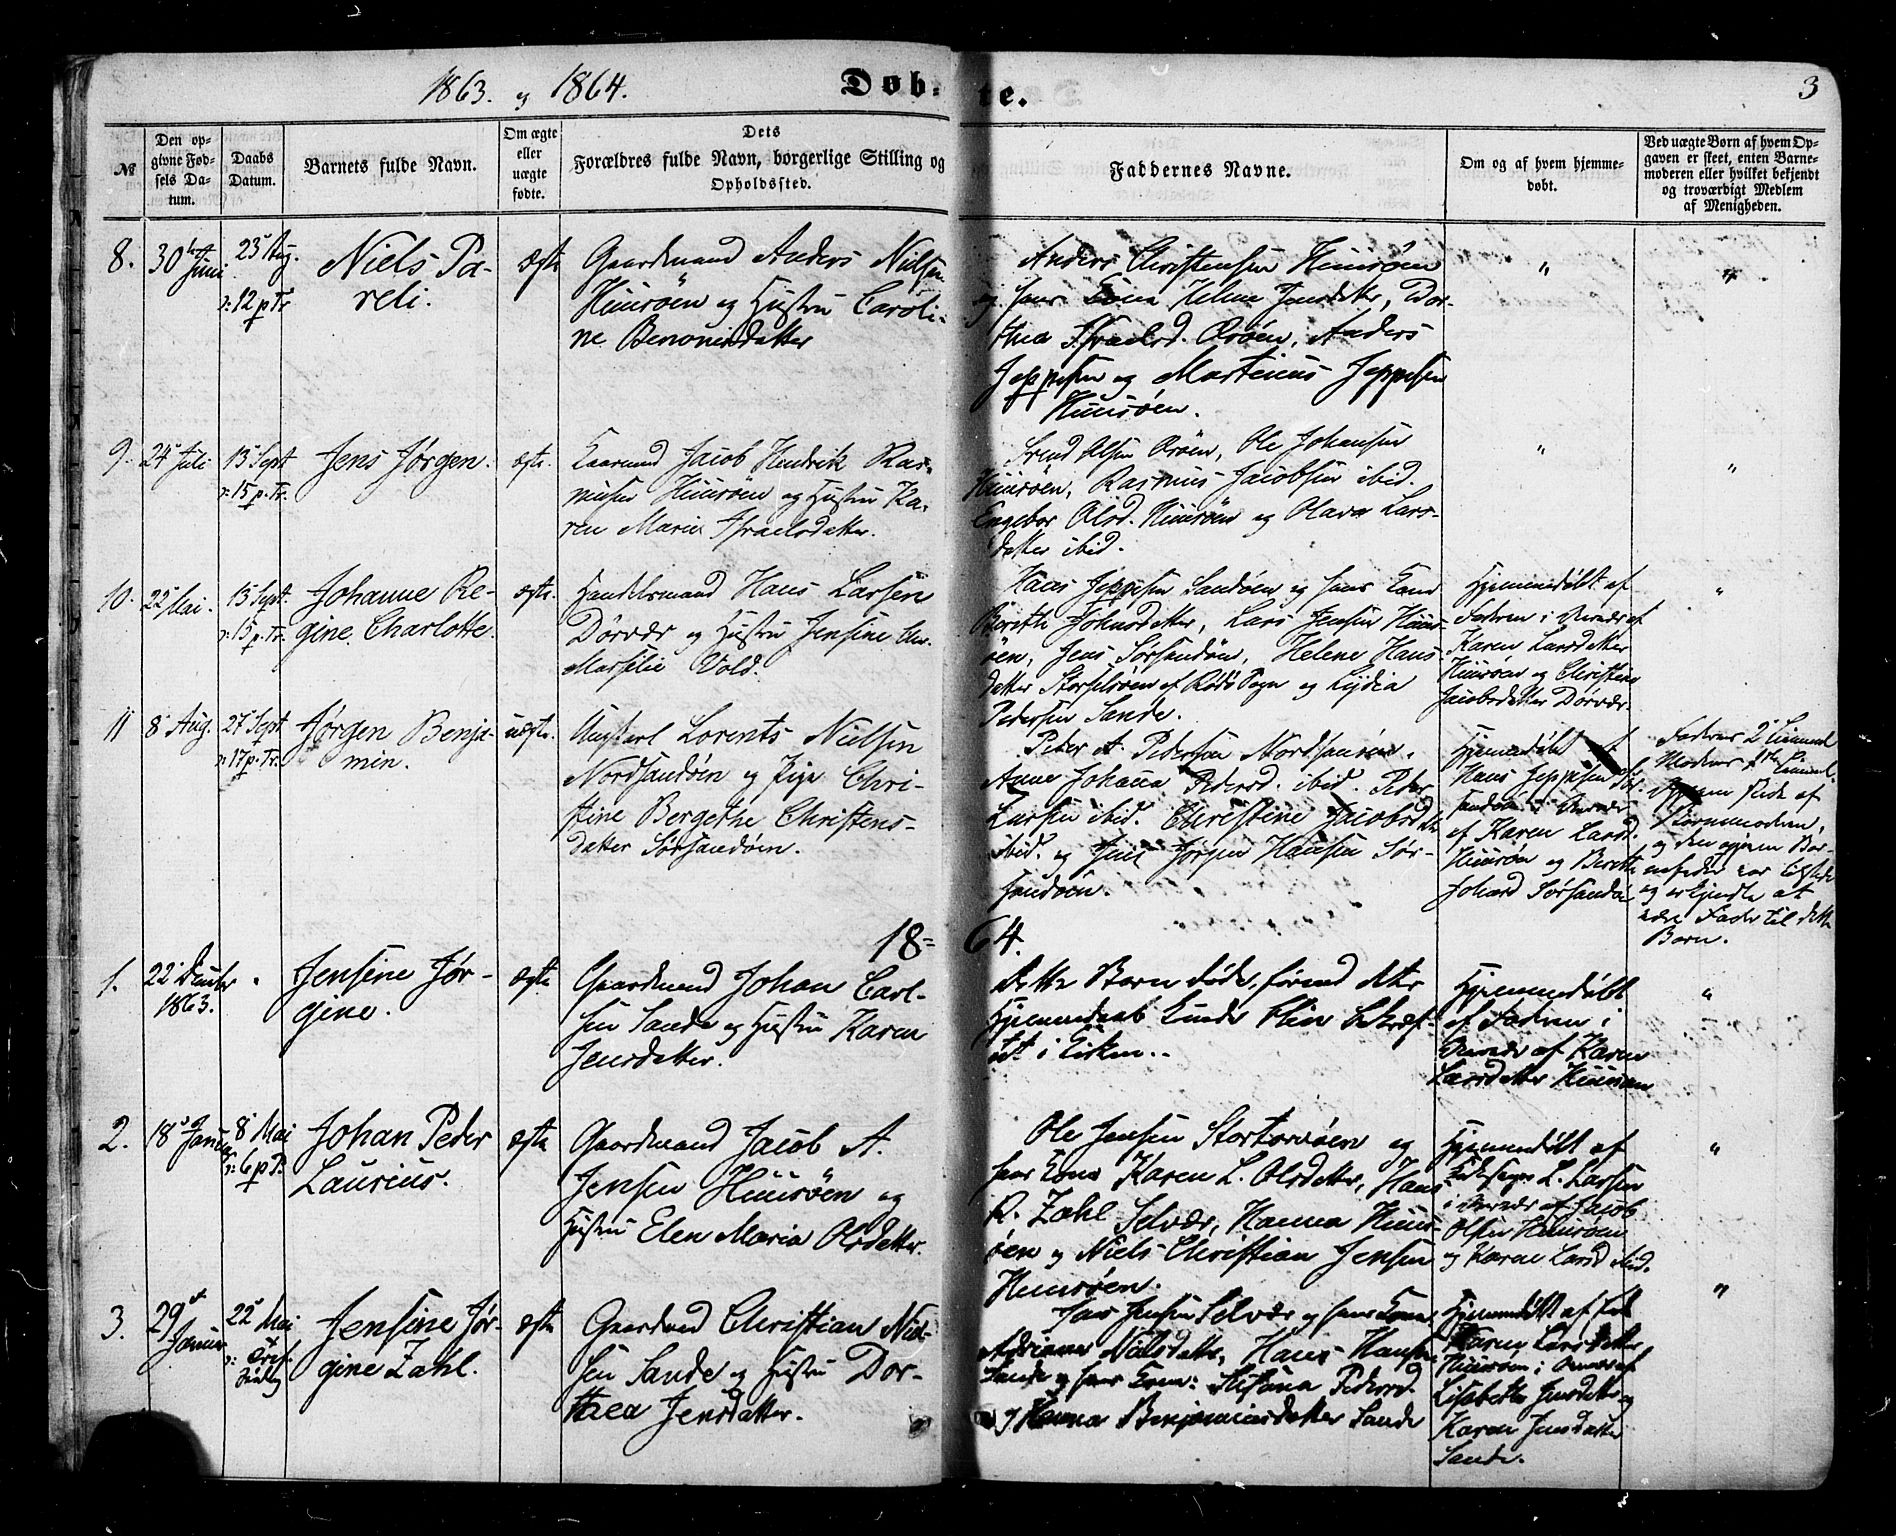 1863. og 1864.
Døbte.
3
№
Den opgivne Fødsels Datum.
Daabs Datum.
Barnets fulde Navn.
Om ægte eller uægte fødte.
Dets Forældres fulde Navn, borgerlige Stilling og Opholdssted.
Faddernes Navne.
Om og af hvem hjemmedøbt.
Ved uægte Børn af hvem Opgaven er skeet, enten Barnemoderen eller hvilket bekjendt og troværdigt Medlem af Menigheden.
8.
30 Juni
23 Aug.
ɔ: 12 p Tr
Niels Pa-
reli.
ægte
Gaardmand Anders Nielsen
Huusöen og Hustru Caroli-
ne Benonisdatter
Anders Christensen Huusöen
og hans Kone Helene Jensdatter, Dor-
thea Israelsd. Osöen, Anders
Jeppesen og Martinus Jeppesen
Huusöen.
"
"
9.
24 Juli
13 Sept
ɔ: 15 p. Tr.
Jens Jørgen.
ægte.
Jacob Hendrik Ras-
musen Huusöen og Hustru Ka-
ren Marie Israelsdatter.
Svend Olsen Osöen, Ole Johansen
Huusöen, Rasmus Jacobsen ibid.
Engebor Olsd. Huusöen og Olava Lars-
datter ibid.
"
"
10.
22 Mai.
13 Sept.
ɔ: 15 p. Tr.
Johanne Re-
gine Charlotte.
ægte.
Handelsmand Hans Larsen
Dörvær og Hustru Jensine
Marsilie Vold.
Hans Jeppesen Sandöen og hans Kone
Berethe Johnsdatter, Lars Jensen Huus-
öen, Jens Sörsandöen, Helene Hans-
datter Storselsöen af Rödö Sogn og Lydia
Pedersen Sande.
Hjemmedöbt af
Faderen i Overvær af
Karen Larsdatter
Huusöen og Christine
Jacobsdatter Dörvær.
"
11
8 Aug.
27 Sept
ɔ: 17 p. Tr.
Jørgen Benja-
min.
uægte.
Ungkarl Lorents Nielsen
Nordsandöen og Pige Chri-
stine Bergethe Christens-
datter Sörsandöen.
Peder A. Pedersen Nordsandöen.
Anne Johana Pedersd. ibid. Peder
Larsen ibid. Christine Jacobsd
ibid. og Jens Jörgen Hansen Sör-
sandöen.
Hjemmedöbt af
Hans Jeppesen Sör-
sandöen i Overvær
af Karen Larsd.
Huusöen og Berethe
Johnsd Sörsandöe
Faderens 2
Moderens 1
af
Barnmoderen,
og den opgivne Bar-
nefader var tilstede
og erkjendte, at
være Fader til dette
Barn.
18-64.
1.
22 December
1863.
"
Jensine Jør-
gine.
ægte
Gaardmand Johan Carl-
sen Sande og Hustru Karen
Jensdatter.
Dette Barn döde, förend dets
Hjemmedaab kunde blive bekræf-
tet i Kirken.
Hjemmedöbt
af Faderen i
Overvær af Karen
Larsdatter Huusöen
"
2.
18 Januar
8 Mai
ɔ: 6 p P.
Johan Peder
Laurius.
ægte
Gaardmand Jacob A.
Jensen Huusöen og
Hustru Elen Maria Olsdatter.
Ole Jensen Stortorvöen og
hans Kone Karen L. Olsdatter, Hans
R. Zahl Selvær, Hanna Huus-
öen og Niels Christian Jensen
Huusöen.
Hjemmedöbt af
L. Larsen
i Overvær af Jacob
Olsen Huusöen
og Karen Larsd ibid.
"
3.
29
Januar
22 Mai
Jensine Jør-
gine Zahl.
ægte
Gaardmand Christian Niel-
sen Sande og Hustru Dor-
thea Jensdatter.
Jensen Selvær og hans Kone
Adriane Nilsdatter, Hans Hansen
Sande og hans Kone: Pedersd.
og Hanna Benjaminsdatter Sande
Hjemmedöbt af
Karen Larsdatter,
Huusöen i Overvær af
Lisabeth Jensdatter og
Karen Jensdatter
Sande.
"